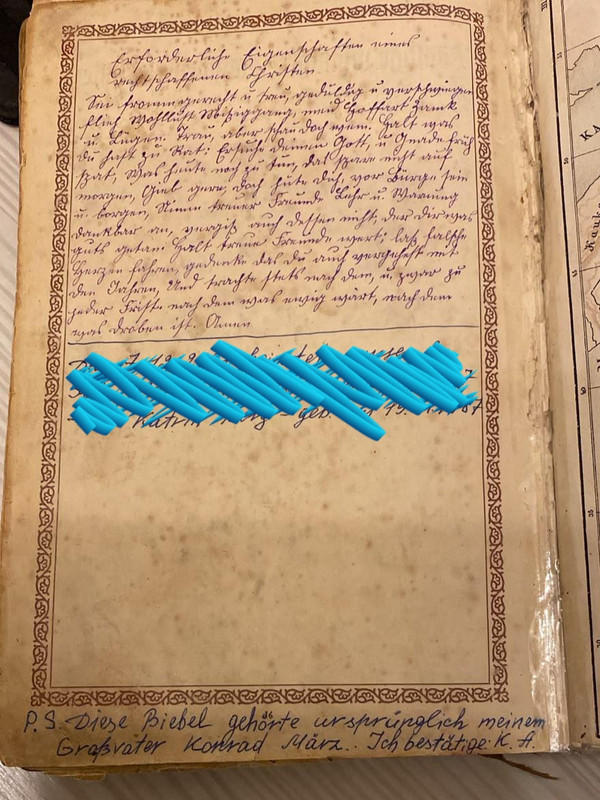 Erforderliche Eigenschaften eines
rechtschaffenen Christen.
Sei fromm gerecht u treu, geduldig u verschwiegen
flieh Wohllust Müssiggang, meid Hoffart Zank
u. Lügen. Trau, aber schau doch wem. Halt was
du hast zu Rat; Ersuche deinen Gott, u Gnade früh
spat, Was heute noch zu tun, das spare nicht auf
morgen, Giel gern, doch hüte dich, vor Bürge sein
u. borgen, Nimm treuer Freunde Lehr u. Warnung
dankbar an, vergiß auch dessen nicht, der dir was
guts getan. Halt treue Freunde wert; laß falsche
Herzen fahren, gedenke das du auch vergehest mit
den Jahren, Und trachte stets nach dem, u. zwar zu
jeder Frist. nach dem was ewig wärt, nach dem
was droben ist. Amen
P.S. Diese Biebel gehörte ursprünglich meinem
Graßvater Konrad März. Ich bestätige: K. A.